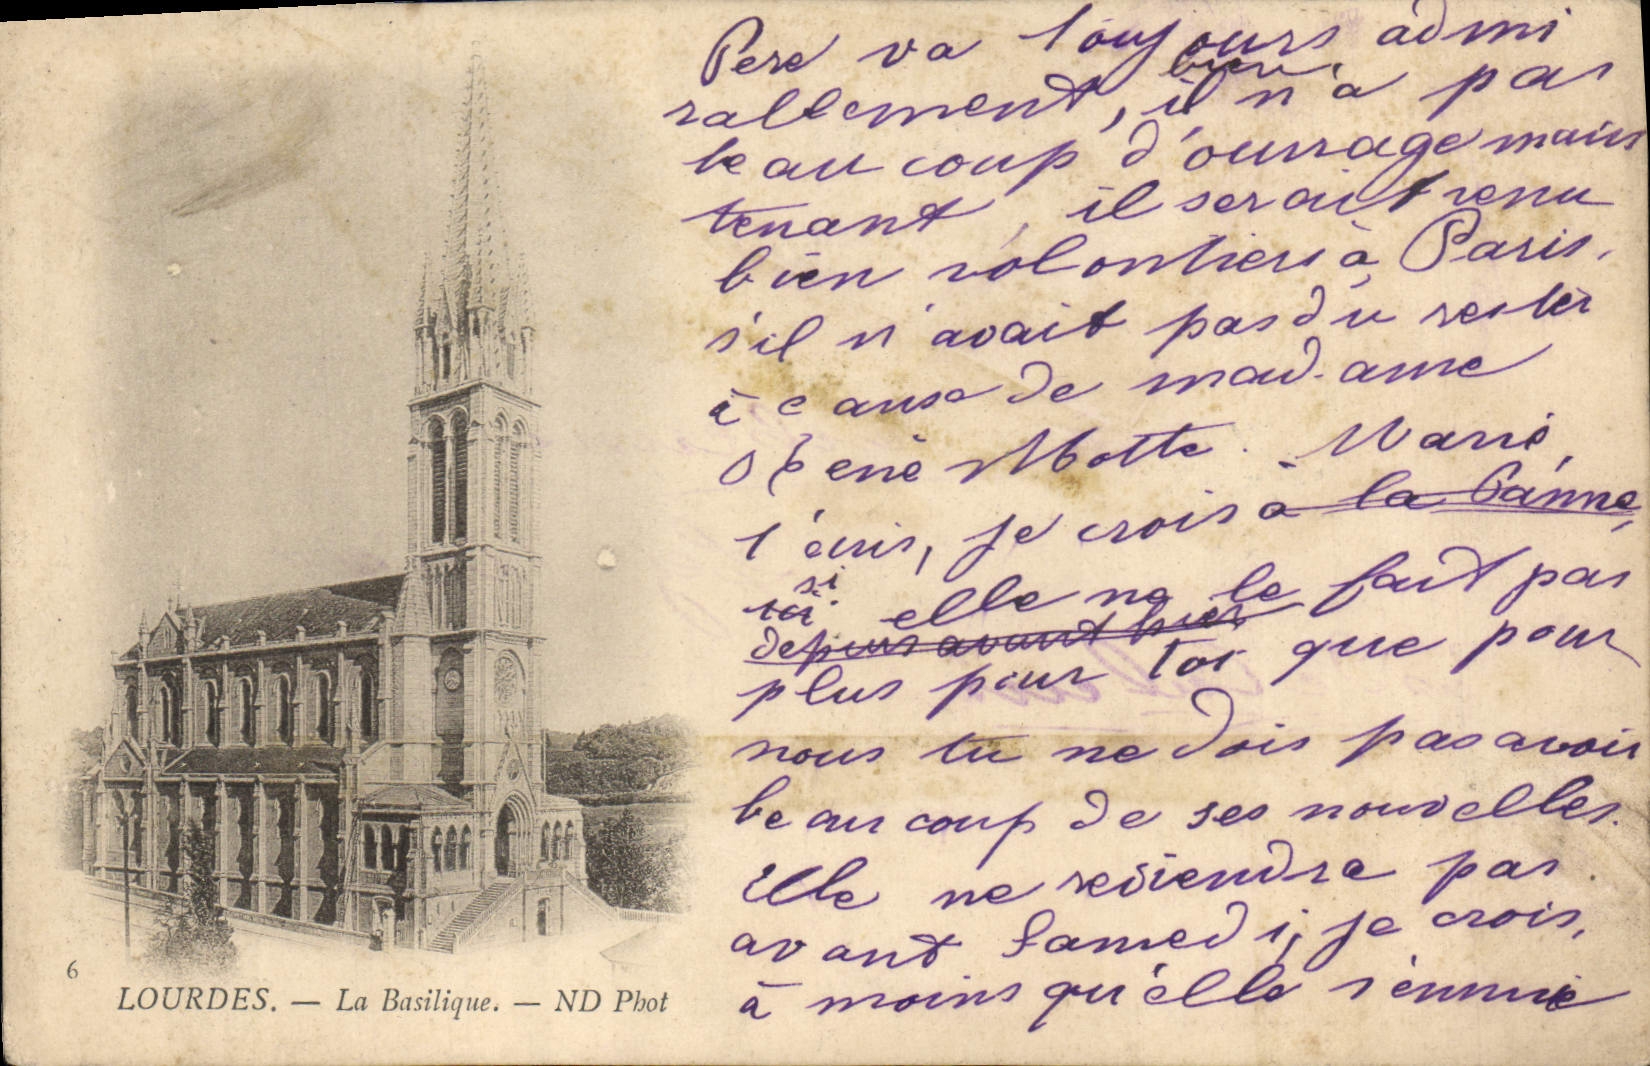 Père va toujours admi
bien
rablement, il n'a pas
beaucoup d'ouvrage main
tenant, il serait venu
bien volontiers à Paris.
s'il n'avait pas du rester
à cause de madame
Réné Motte. Marie,
t'écris, je crois à la Panne,
si
toi elle ne le fait pas
depuis avant hier
plus pour toi que pour
nous tu ne dois pas avoir
beaucoup de ses nouvelles.
Elle ne reviendra pas
avant Samedi, je crois,
à moins qu'elle s'ennuie
6
LOURDES. — La Basilique. — ND Phot